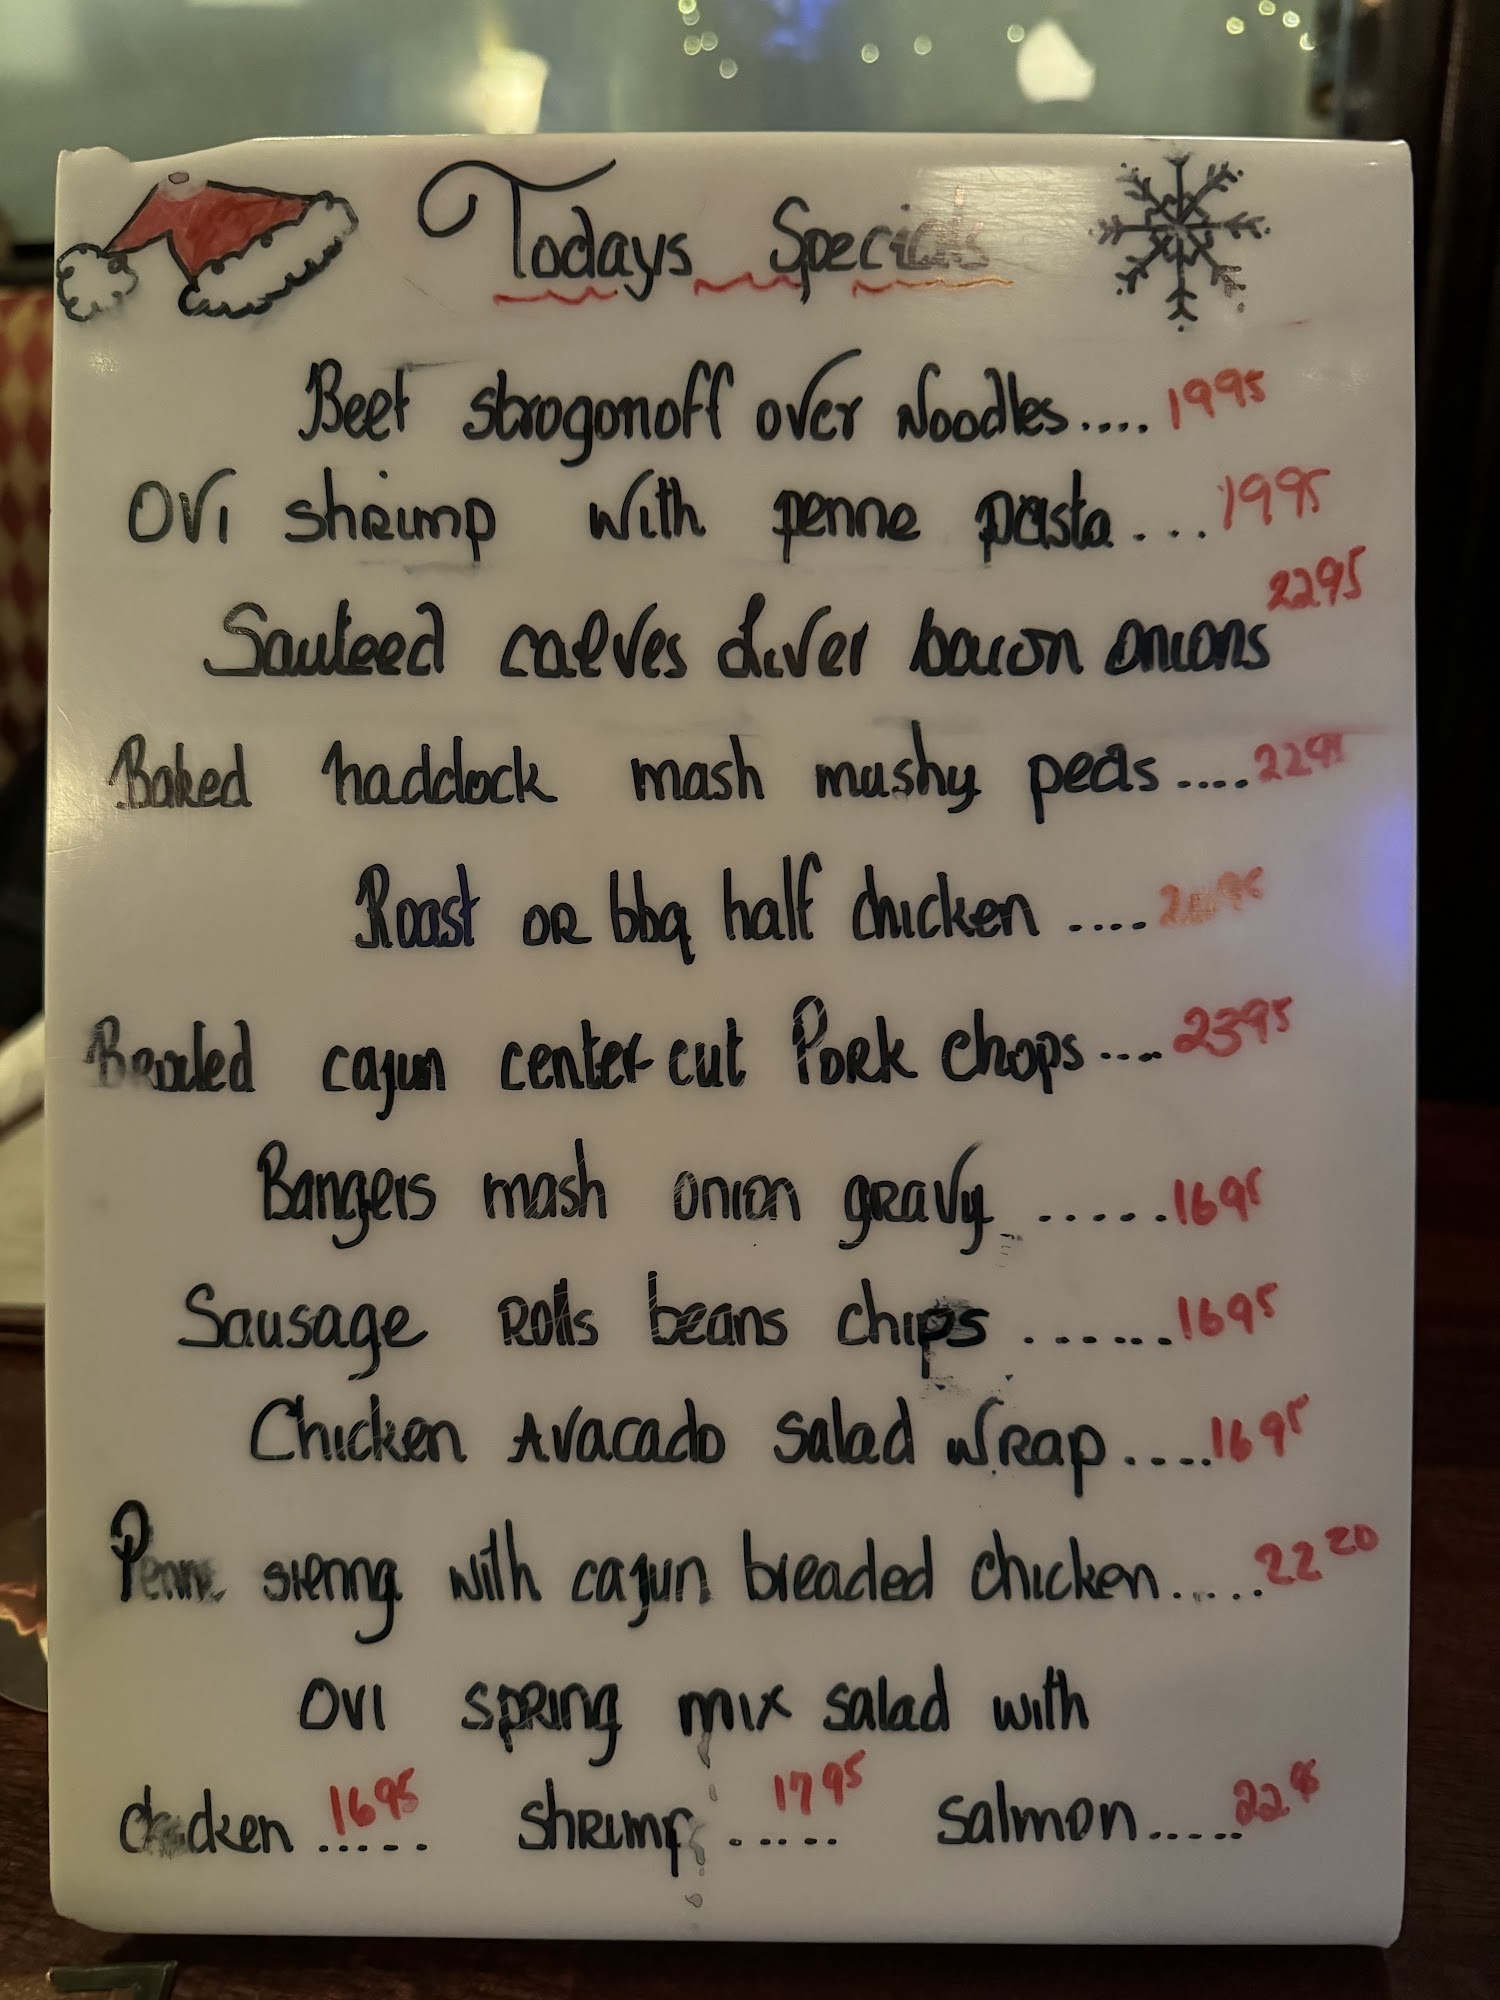 Todays Specials
Beef strogonoff over Noodles.... 1995
OVI shrimp with penne pasta.... 1995
2295
Sauteed calves Liver bacon onions
Baked haddock mash mushy peas.... 2295
Roast OR bbq half chicken ....
cajun center cut Pork chops.... 2395
Bangers mash onion gravy ...... 1695
Sausage Rolls beans chips ....... 1695
Chicken Avacado salad Wrap.... 1695
Penne with cajun breaded chicken..... 2220
OVI spring mix salad with
chicken ..... 1695 shrimp ..... 1795 salmon.....